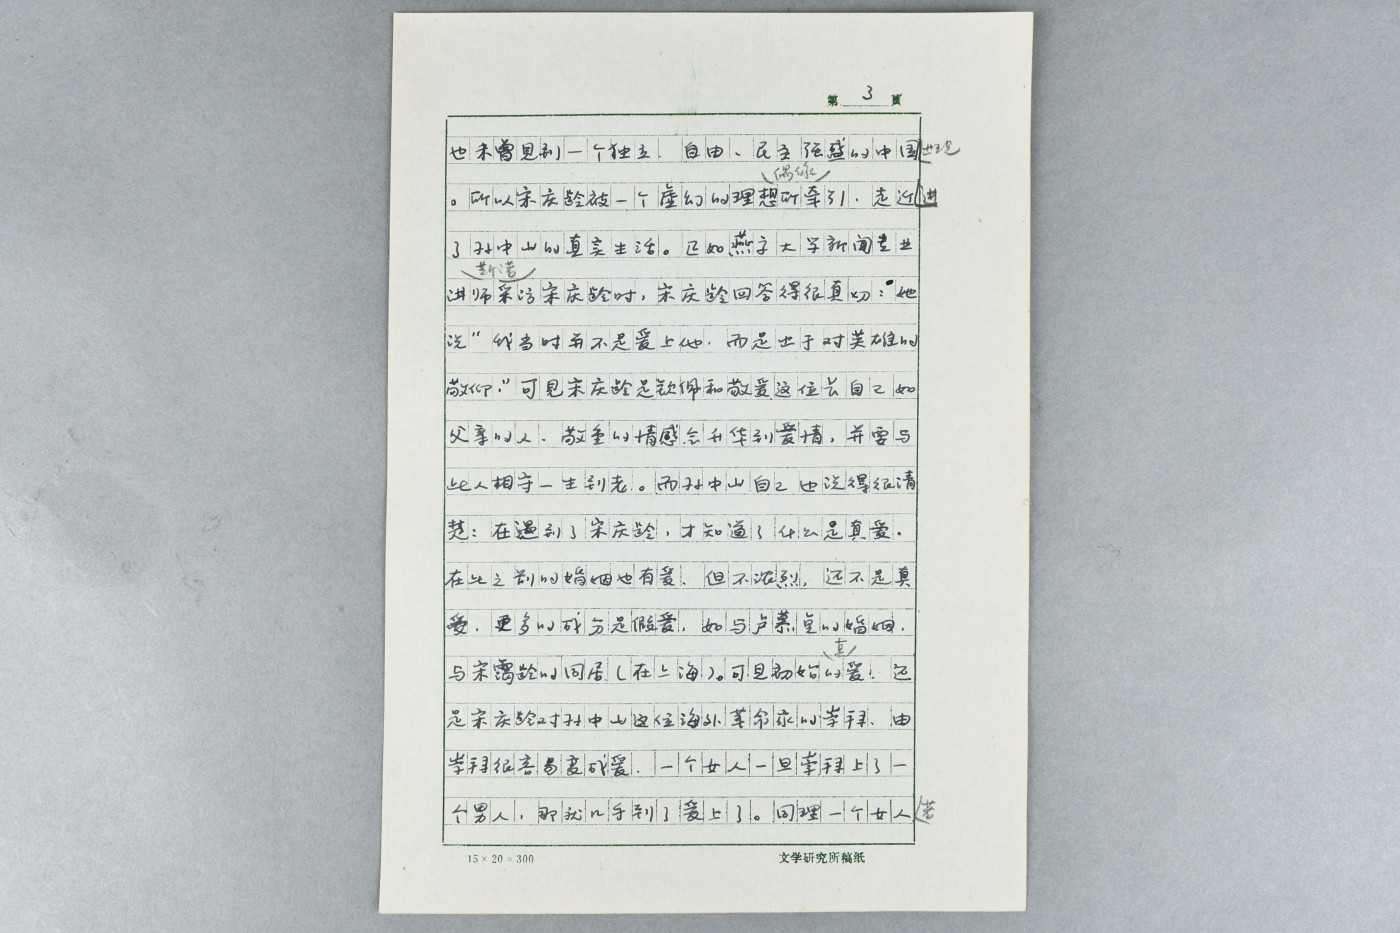 第 3 页
也未曾见到一个独立、自由、民主强盛的中国出现
偶像
。所以宋庆龄被一个虚幻的理想所牵引,走近进
了孙中山的真实生活。正如燕京大学新闻专业
斯诺
讲师采访宋庆龄时,宋庆龄回答得很真切:她
说“我当时并不是爱上他,而是出于对英雄的
敬仰。”可见宋庆龄是钦佩和敬爱这位长自己如
父亲的人、敬重的情感会升华到爱情,并要与
此人相守一生到老。而孙中山自己也说得很清
楚:在遇到了宋庆龄,才知道了什么是真爱。
在此之前的婚姻也有爱、但不浓烈,还不是真
爱,更多的成分是假爱,如与卢慕贞的婚姻,
真
与宋霭龄的同居(在上海)。可见初始的爱,还
是宋庆龄对孙中山这位海外革命家的崇拜、由
崇拜很容易变成爱,一个女人一旦崇拜上了一
个男人,那就几乎到了爱上了。同理一个女人若
15×20=300
文学研究所稿纸